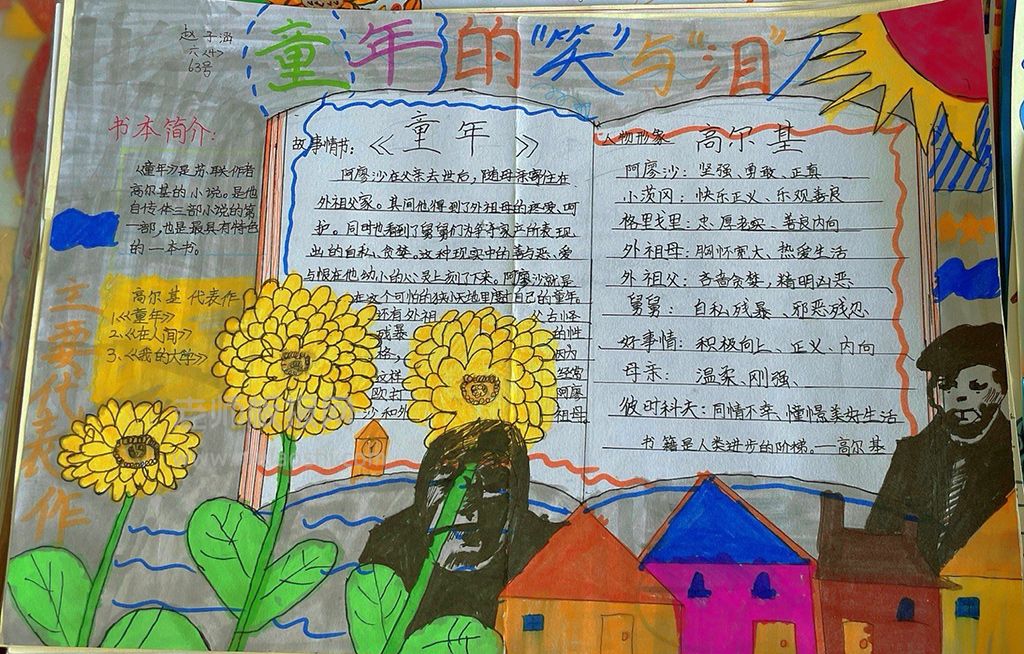 赵子涵
六<4>
63号
童年的"笑"与"泪"
书本简介:
《童年》是苏联作者
高尔基的小说。是他
自传体三部小说的第
一部,也是最具有特色
的一本书。
主要代表作
高尔基代表作
1.《童年》
2.《在人间》
3.《我的大学》
故事情书:《童年》
阿廖沙在父亲去世后,随母亲寄住在
外祖父家。其间他得到了外祖母的疼爱、呵
护。同时也看到了舅舅们为争夺家产的表现
出的自私、贪婪。这种现实中的善与恶、爱
与恨在他幼小的心灵上刻了下来。阿廖沙就是
在这个可怕的狭小天地里度自己的童年。
还有外祖
父古怪
残暴
的性
格,
因为
这样
经常
殴打
阿廖
沙和外
祖母
人物形象 高尔基
阿廖沙:坚强、勇敢、正真
小茨冈:快乐正义、乐观善良
格里戈里:忠厚老实、善良内向
外祖母:胸怀宽大、热爱生活
外祖父:吝啬贪婪,精明凶恶
舅舅:自私残暴、邪恶残忍
好事情:积极向上、正义、内向
母亲:温柔、刚强、
彼时科夫:同情不幸、憧憬美好生活
书籍是人类进步的阶梯。——高尔基